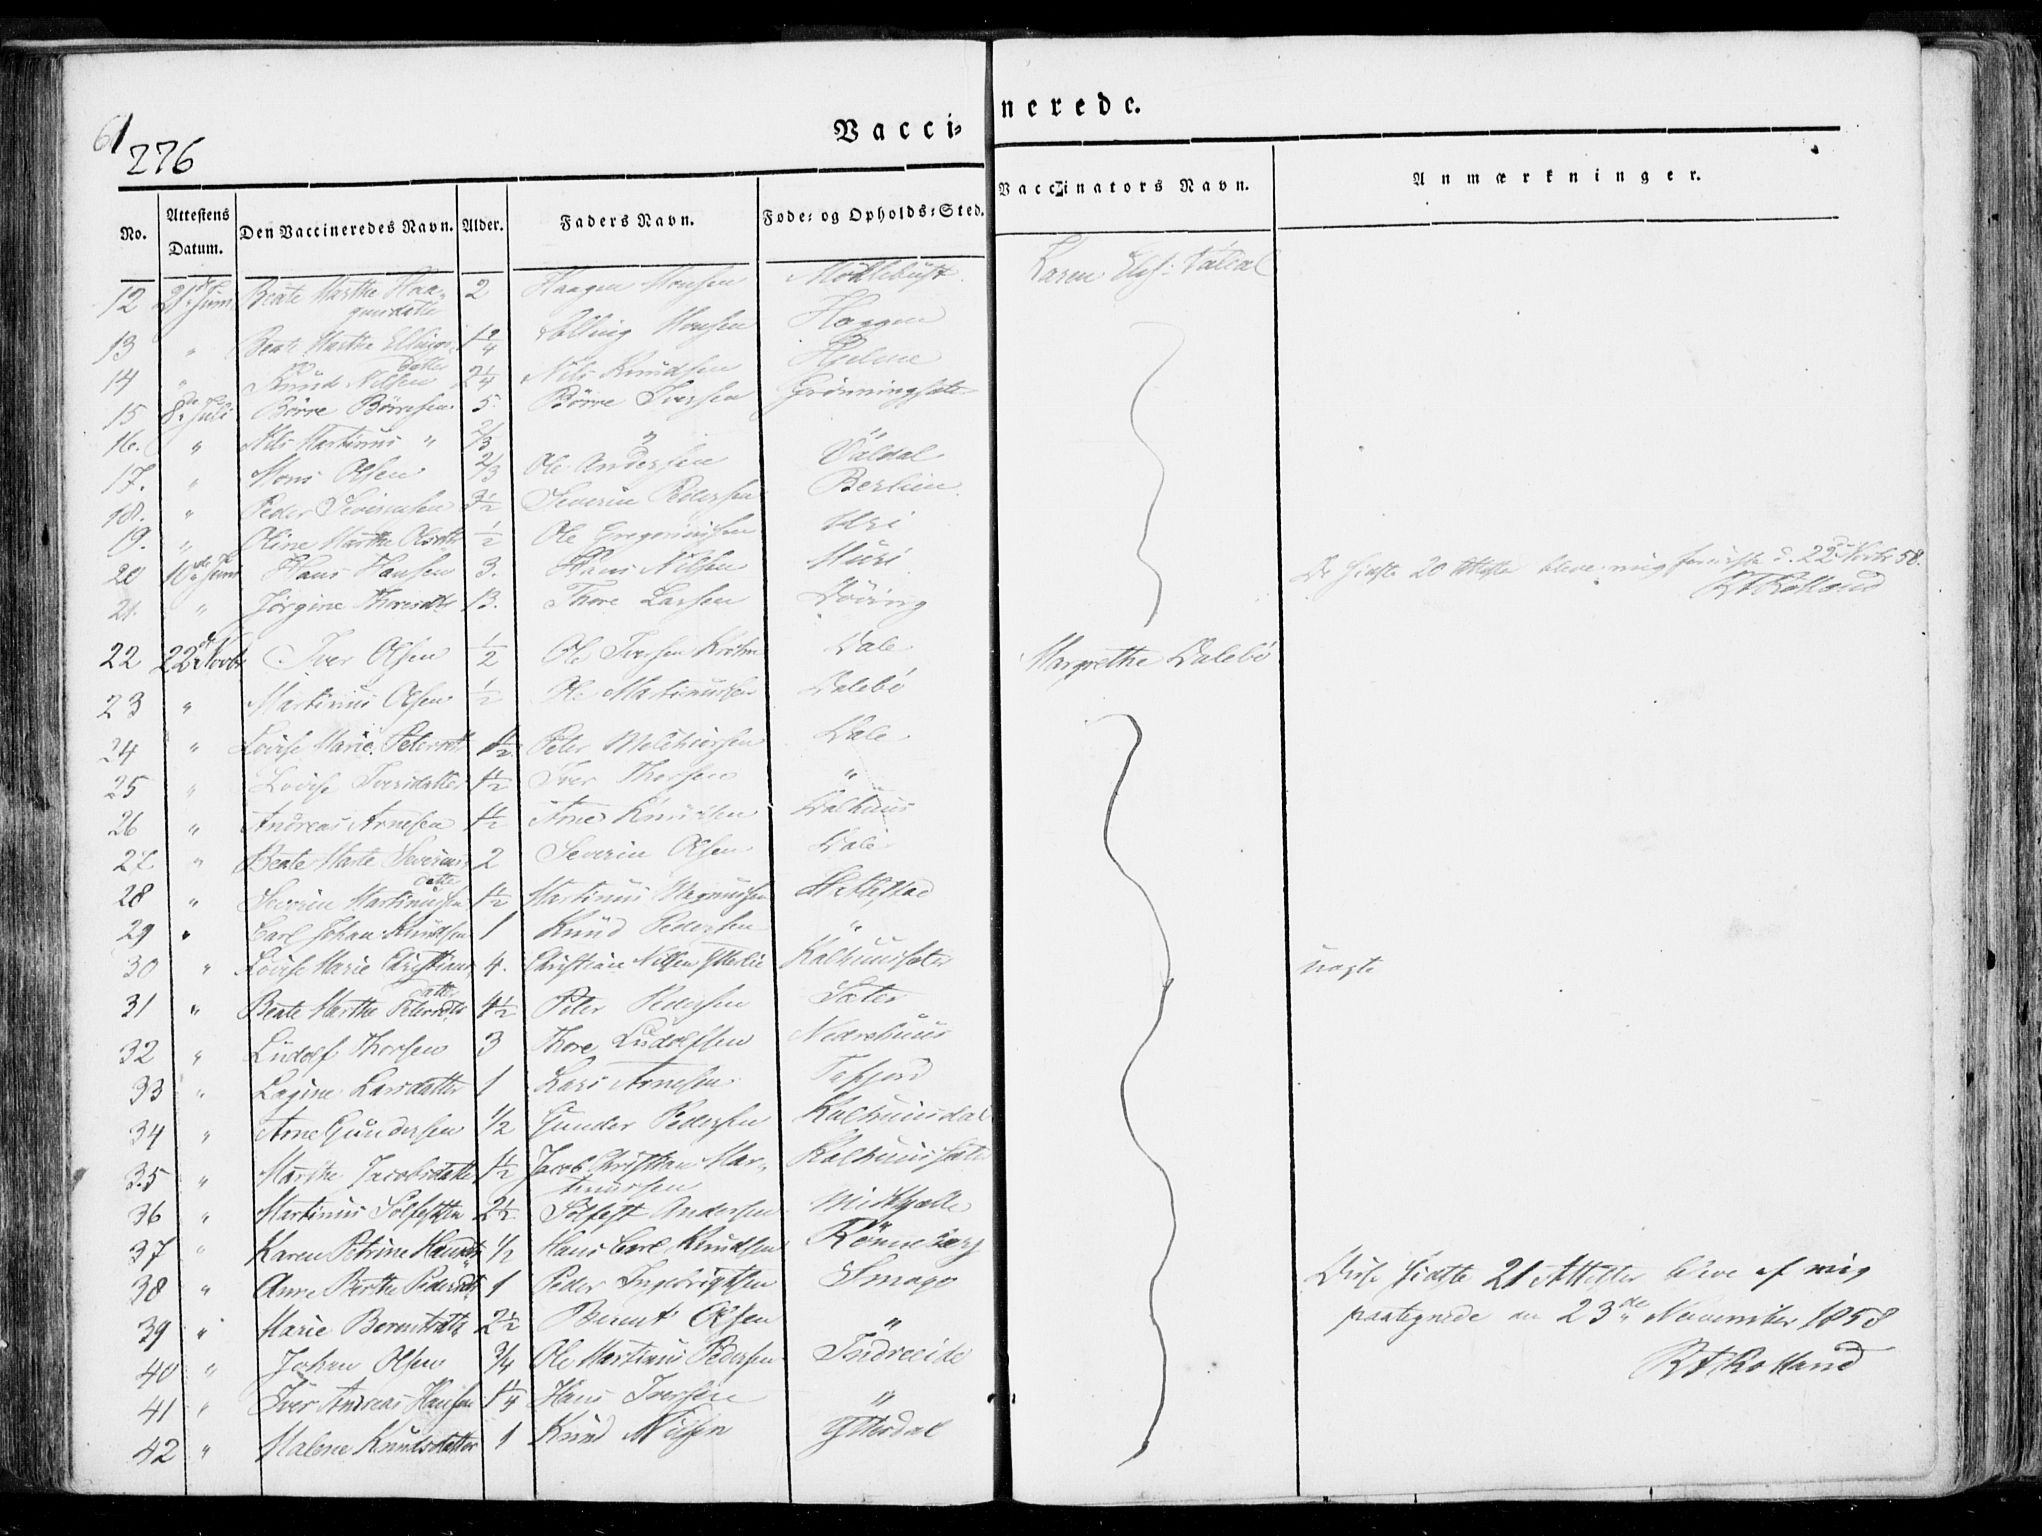 61
276
Vacci-
nerede.
No. Attestens Datum. Den Vaccineredes Navn. Alder. Faders Navn. Føde- og Opholds-Sted. Vaccinators Navn. Anmærkninger.
12 21de Juni Beate Marthe Haa- 2 Haagen Monsen Karen Elis: Valdal
gensdatter
13 " Beate Marthe Ellings 1 2/4 Elling Monsen Haggen
datter
14 " Knud Nilsen 2 1/4 Nils Knudsen Hjelme
15 8de Juli Børre Børresen 5. Børre Iversen Grønningsæter
16. " Nils Martinus " 2/3 " "
17. " Mons Olsen 2/3 Ole Andersen Valdal
18. " Peder Severinsen 3 1/2 Severin Pedersen Berlien
19. " Oline Marthe Olsdtr 1/2 Ole Gregoriussen Uri
20 10de Juni Hans Hansen 3. Hans Nilsen Muri De sidste 20 Attester bleve mig foreviste d. 22d Novbr 58.
RTRolland
21. " Jørgine Thoresdtr 13. Thore Larsen Døving
22 22d Novbr Iver Olsen 1/2 Ole Iversen Dale Margrethe Dalebø
23 " Martinus Olsen 1/2 Ole Martinussen Dalebø
24 " Lovise Marie Petersdtr 1 1/2 Peter Melchiorsen Dale
25 " Lovise Iversdatter 1 1/2 Iver Thorsen "
26 " Andreas Arnesen 1 1/2 Arne Knudsen Dalhuus
27 " Beate Marte Severins 2 Severin Olsen Dale
datter
28 " Severin Martinussen 1 1/2 Martinus Magnussen
29 " Carl Johan Knudsen 1 Knud Pedersen "
30 " Lovise Marie Christians 4. Christian Nilsen Ytterlie Kalhuussæter
datter
31 " Beate Marthe Petersdtr 4 1/2 Peter Pedersen Sæter
32 " Ludolf Thorsen 3 Thore Ludolfsen Nedrehuus
33 " Lagine Larsdatter 1 Lars Arnesen Tafjord
34 " Arne Gundersen 1/2 Gunder Pedersen Kalhuusdal
35 " Marthe Jacobsdatter 1 1/2 Jacob Christian Mar- Kalhuussæter
tinussen
36 " Martinus Solfestsen 2 1/2 Solfest Andersen
37 " Karen Petrine Hansdtr 1/2 Hans Carl Knudsen Rønneberg
38 " Anne Berthe Pedersdtr 1 Peder Ingebrigtsen Smoge Disse sidste 21 Attester bleve af mig
39 " Marie Berntsdtr 2 1/2 Bernt Olsen " paategnede den 23de November 1858
40 " Johan Olsen 3/4 Ole Martinus Pedersen Indreeide RTRolland
41 " Iver Andreas Hansen 1 1/4 Hans Iversen "
42 " Malene Knudsdatter 1 Knud Nilsen Ytterdal